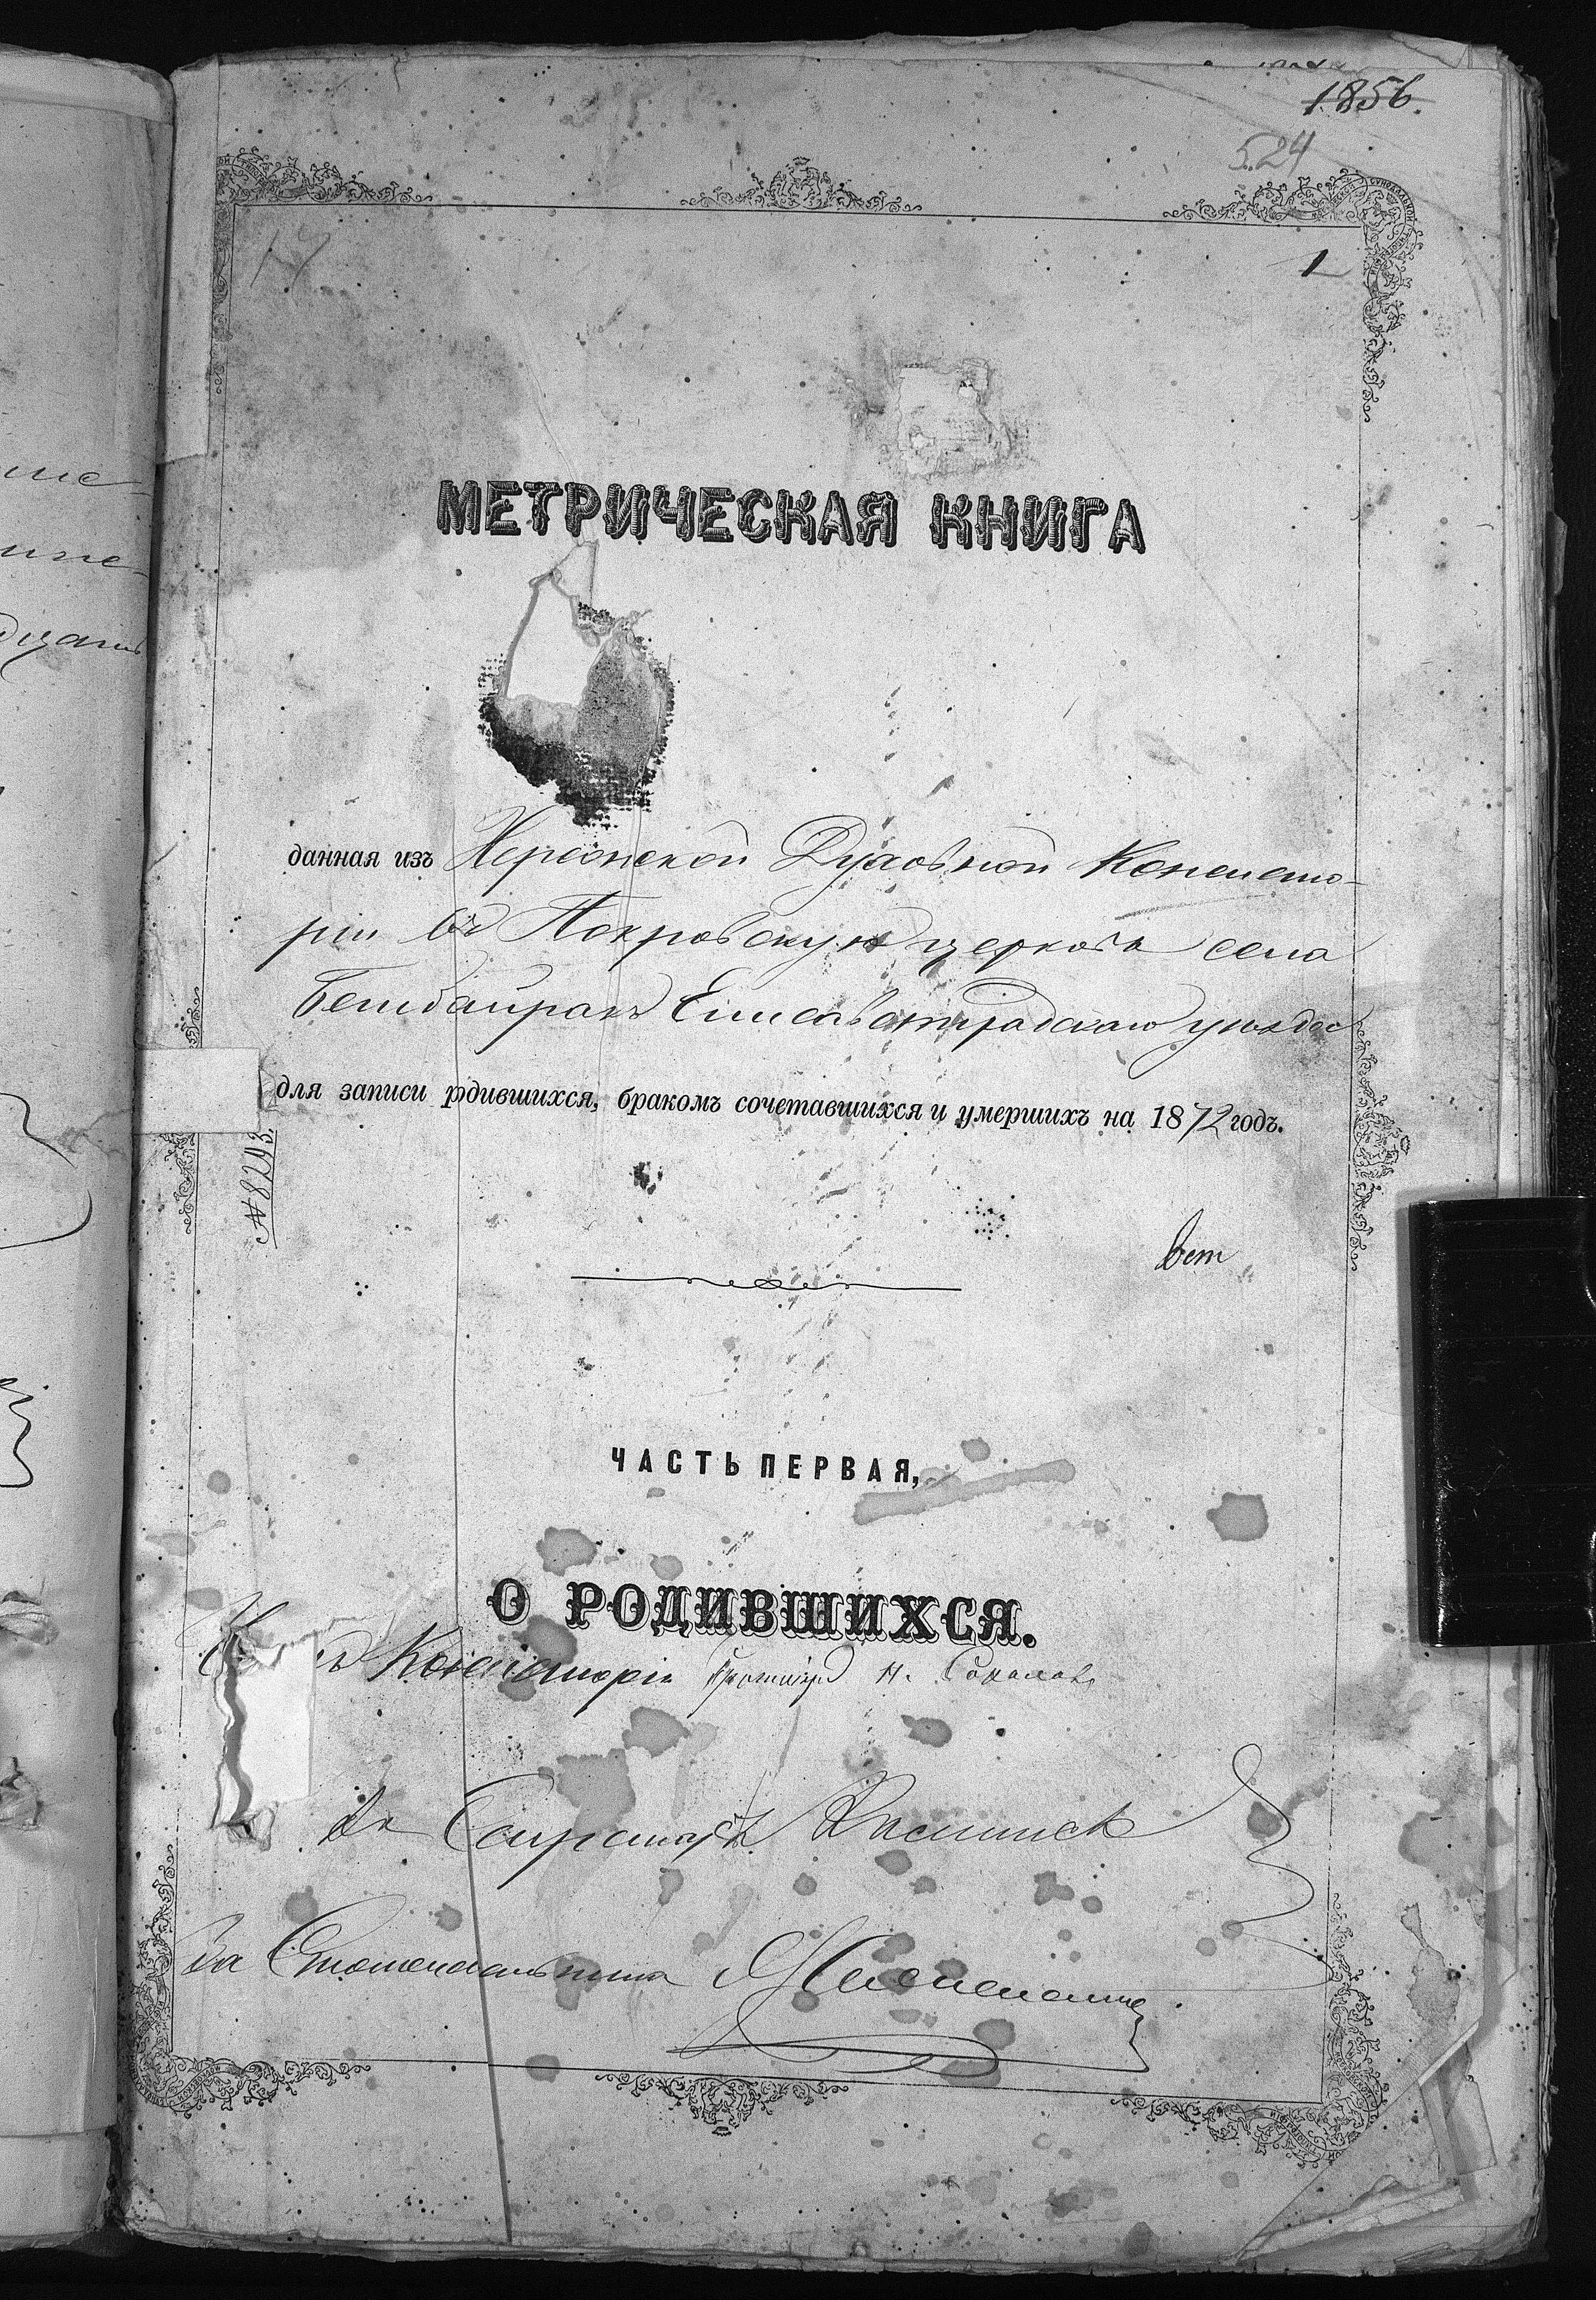 1856.
524
17
1
МЕТРИЧЕСКАЯ КНИГА
данная изъ Херсонской Духовной Консисто-
ріи въ Покровскую церковь села
Бешбайракъ Елисаветградскаго уѣзда
для записи рдившихся, бракомъ сочетавшихся и умершихъ на 1872 годъ.
№ 8293
ЧАСТЬ ПЕРВАЯ,
О РОДИВШИХСЯ.
Консисторіи Протоіерей Н. Соколовъ
Секретарь
За Столоначальника